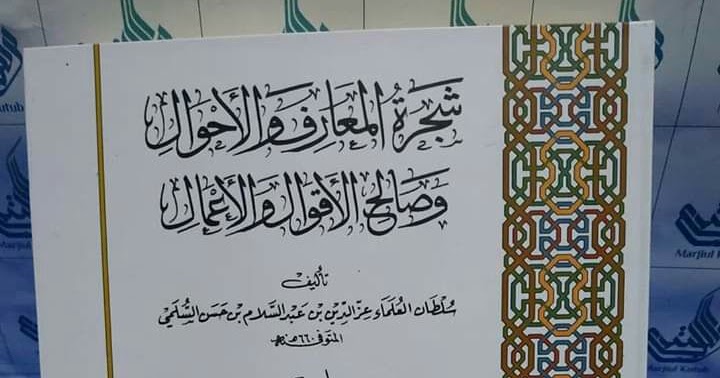 شَجَرَةُ المَعَارِفِ وَالأَحْوَالِ
وَصَالِحُ الأَقْوَالِ وَالأَعْمَالِ
تأليف
سُلْطَان العُلَمَاء عِزّ الدِّيْن بْن عَبْد السَّلَام بْن حَسَن السُّلَمِيّ
المتوفى ٦٦٠ هـ
Marjiul Kutub